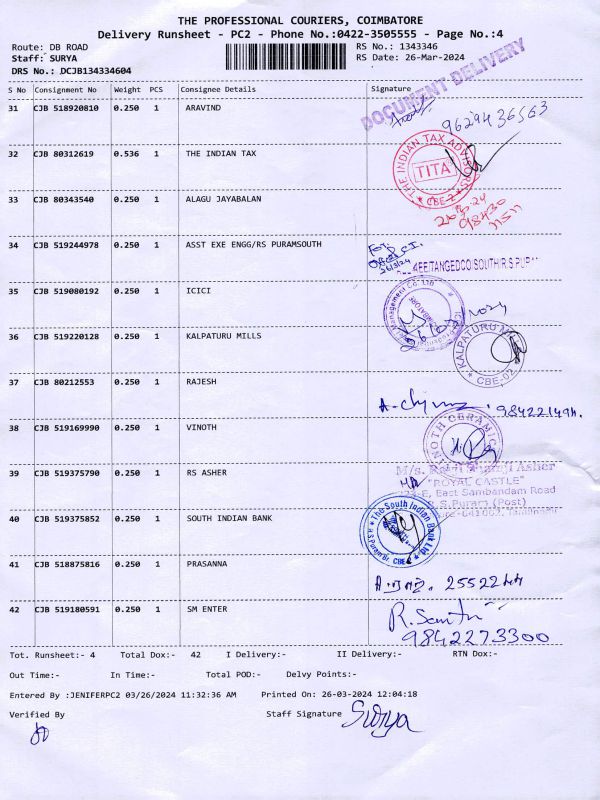 THE PROFESSIONAL COURIERS, COIMBATORE
Delivery Runsheet - PC2 - Phone No.:0422-3505555 - Page No.:4
Route: DB ROAD
RS No.: 1343346
Staff: SURYA
RS Date: 26-Mar-2024
DRS No.: DCJB134334604
DOCUMENT DELIVERY
S No Consignment No Weight PCS Consignee Details Signature
31 CJB 518920810 0.250 1 ARAVIND
9629436563
32 CJB 80312619 0.536 1 THE INDIAN TAX
THE INDIAN TAX ADVISORS
TITA
CBE-2
33 CJB 80343540 0.250 1 ALAGU JAYABALAN
98430
34 CJB 519244978 0.250 1 ASST EXE ENGG/RS PURAMSOUTH
For
26/3/24
35 CJB 519080192 0.250 1 ICICI
Management Co. Ltd
26/03/2024
36 CJB 519220128 0.250 1 KALPATURU MILLS
KALPATURU
CBE-02
37 CJB 80212553 0.250 1 RAJESH
38 CJB 519169990 0.250 1 VINOTH
VINOTH CERAMICS
39 CJB 519375790 0.250 1 RS ASHER
Asher
"ROYAL CASTLE"
East Sambandam Road
R.S.Puram (Post)
40 CJB 519375852 0.250 1 SOUTH INDIAN BANK
The South Indian Bank Ltd
41 CJB 518875816 0.250 1 PRASANNA
2552244
42 CJB 519180591 0.250 1 SM ENTER
9842273300
Tot. Runsheet:- 4 Total Dox:- 42 I Delivery:- II Delivery:- RTN Dox:-
Out Time:- In Time:- Total POD:- Delvy Points:-
Entered By :JENIFERPC2 03/26/2024 11:32:36 AM Printed On: 26-03-2024 12:04:18
Verified By Staff Signature Surya